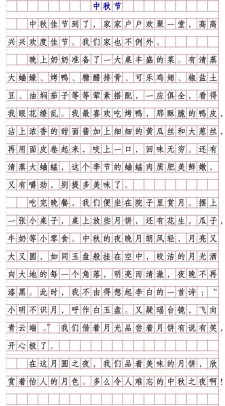 中秋节
中秋佳节到了，家家户户欢聚一堂，高高
兴兴欢度佳节。我们家也不例外。
晚上奶奶准备了一大桌丰盛的菜。有清蒸
大蝙蠓、烤鸭、糖醋排骨、可乐鸡翅、椒盐土
豆、油焖茄子等等荤素搭配，一应俱全，看得
我眼花缭乱。我最喜欢吃烤鸭，那酥脆的鸭皮，
沾上浓香的甜面酱加上细细的黄瓜丝和大葱丝，
再用面皮卷起来，咬上一口，回味无穷。还有
清蒸大蝙蠓，这个季节的蝙蠓肉质肥美鲜嫩，
又有嚼劲，别提多美味了。
吃完晚餐，我们便坐在院子里赏月。摆上
一张小桌子，桌上放些月饼，还有花生，瓜子，
牛奶等小零食。中秋的夜晚月朗风轻，月亮又
大又圆，如同玉盘般挂在空中，皎洁的月光洒
向大地的每一个角落，明亮而清澈，夜晚不再
漆黑。此时，我不由得想起李白的一首诗：“
小明不识月，呼作白玉盘。又疑瑶台镜，飞向
青云端。”我们借着月光品尝着月饼有说有笑，
开心极了。
在这月圆之夜，我们品着美味的月饼，欣
赏着怡人的月色。多么令人难忘的中秋之夜啊！